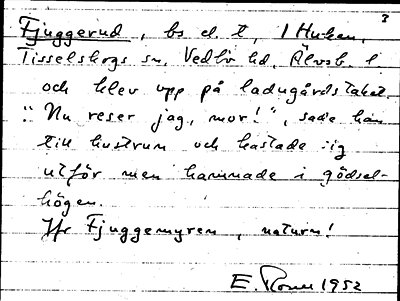 3
Fjuggerud, bs el. t, 1 Huken,
Tisselskogs sn, Vedbo hd, Älvsb. l
och klev upp på ladugårdstaket.
"Nu reser jag, mor!", sade han
till hustrun och kastade sig
utför men hamnade i gödsel-
högen.
Jfr Fjuggemyren, naturn!
E. 1952